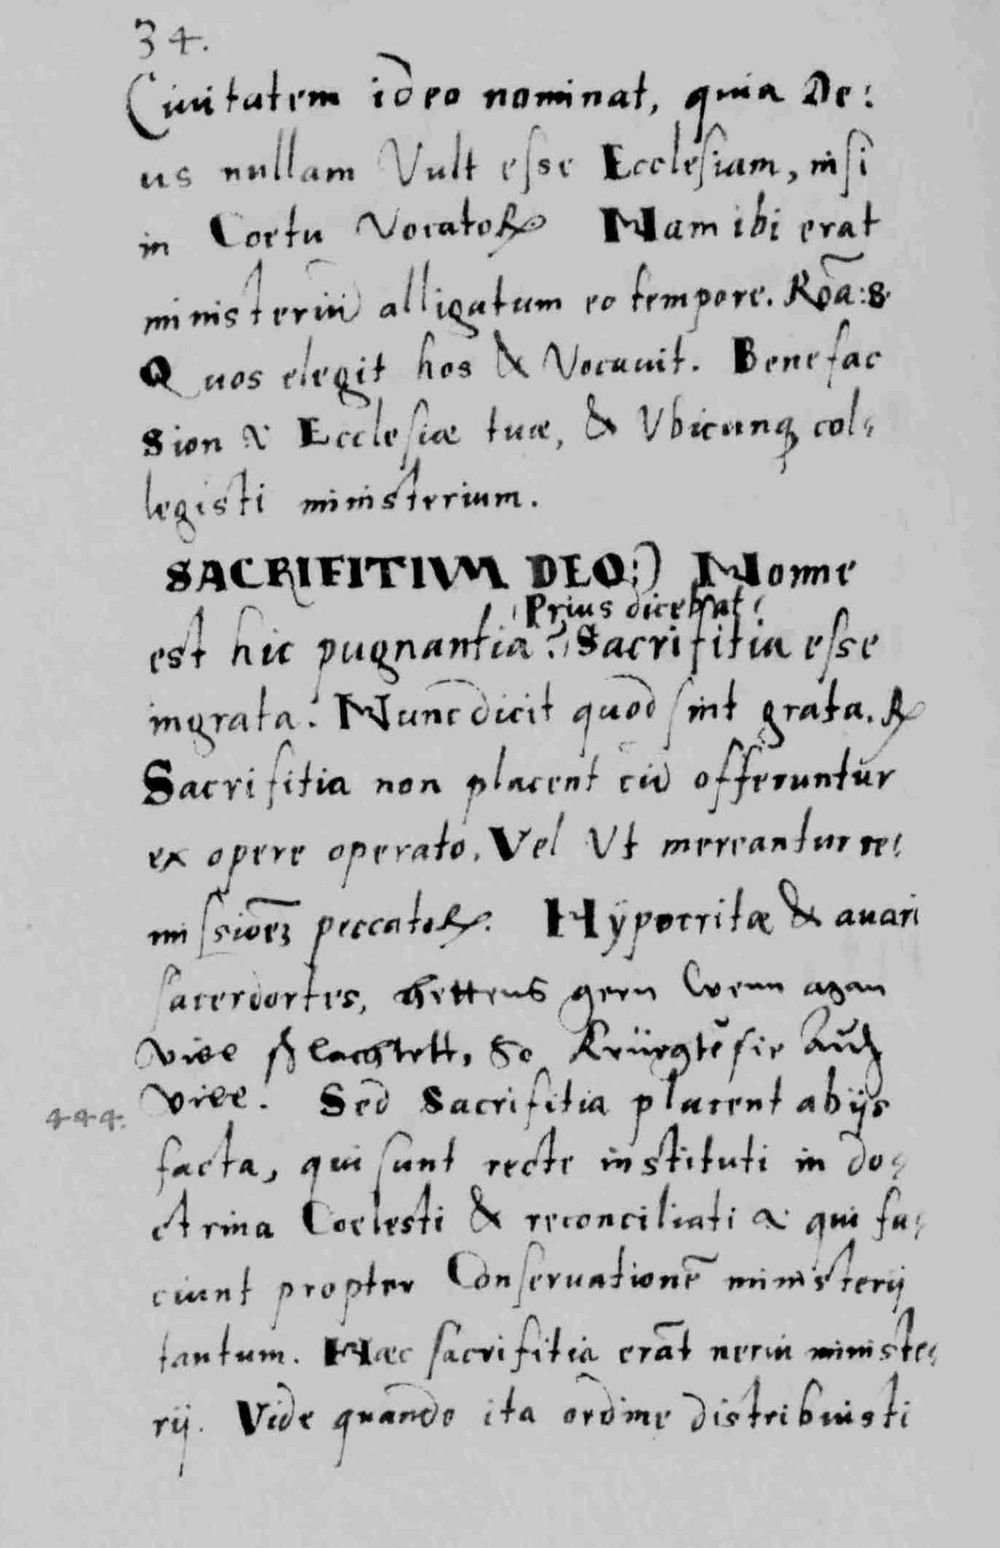 34.
Ciuitatem ideo nominat, quia De:
us nullam Vult esse Ecclesiam, nisi
in Coetu Vocatoꝝ Nam ibi erat
ministeriū alligatum eo tempore. Rōa: 8.
Quos elegit hos & Vocauit. Benefac
Sion & Ecclesiæ tuæ, & Vbicunq̨ col:
legisti ministerium.
SACRIFITIVM DEO:) Nonne
Prius dicebat:
est hic pugnantia? Sacrifitia esse
ingrata: Nunc dicit quod sint grata. ꝶ
Sacrifitia non placent cū offeruntur
ex opere operato, Vel Vt mereantur re:
missionēz peccatoꝝ. Hÿpocritæ & auari
sacerdortes, hettens gern wenn man
viel schlachtett, So Kriigtē sie Auch
viel. Sed Sacrifitia placent abijs
444.
facta, qui sunt recte instituti in do:
ctrina Coelesti & reconciliati & qui fa:
ciunt propter Conseruationē ministerij
tantum. Hæc sacrifitia erāt neruī ministe:
rij. Vide quando ita ordine distribuisti